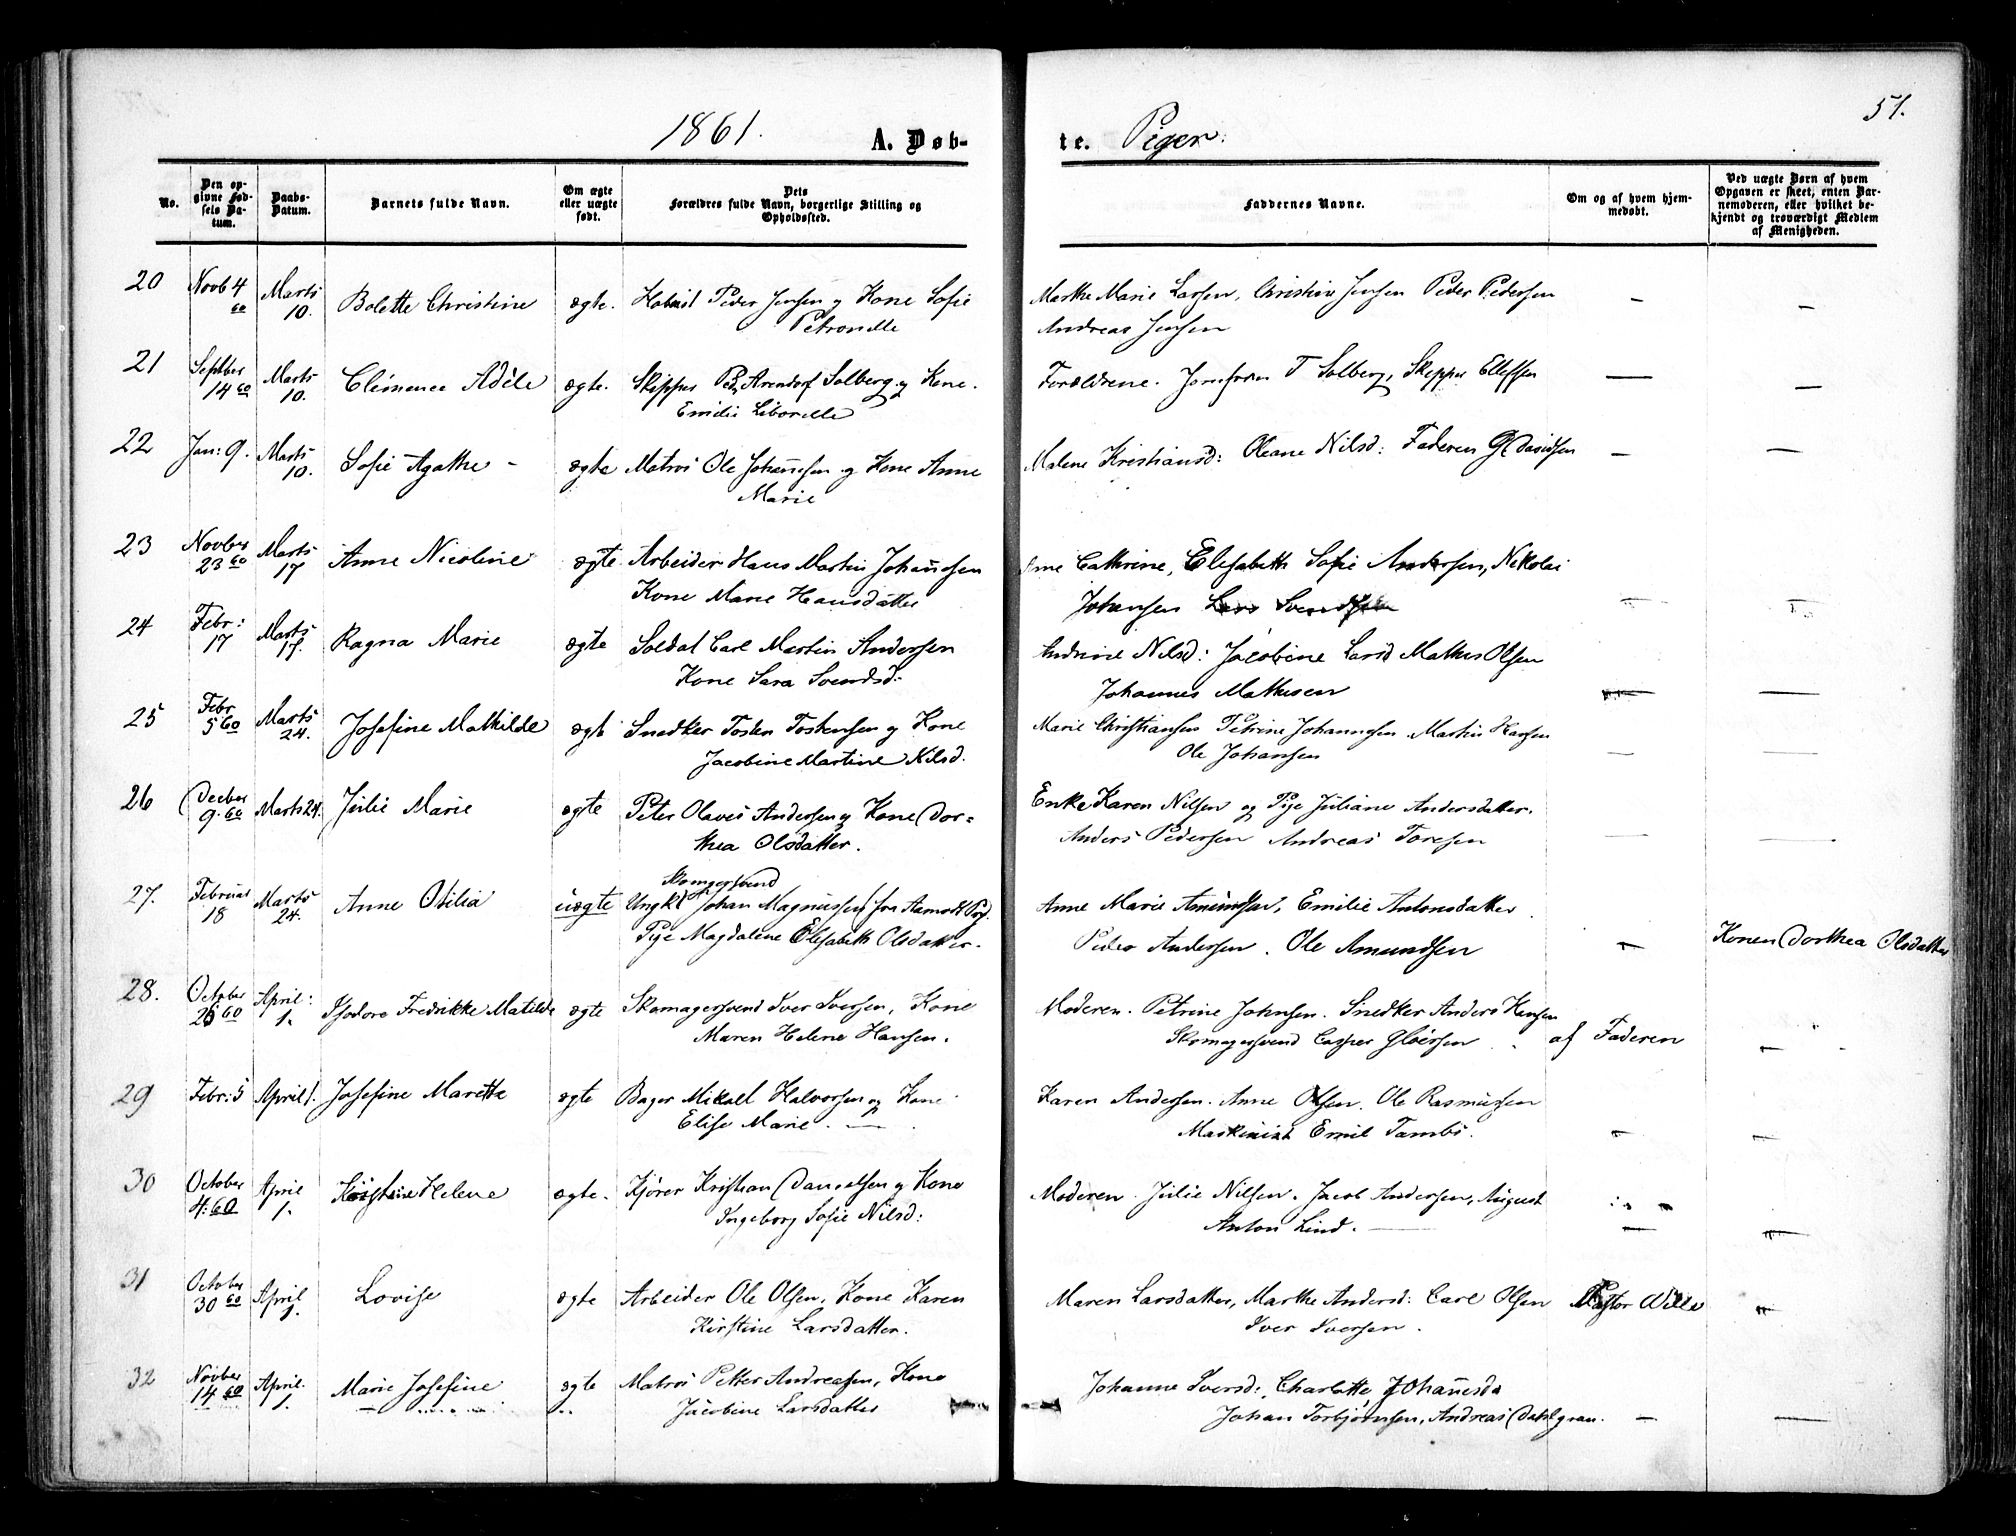 1861.
A. Døb-
te. Piger.
51.
No.
Den op-
givne Fød-
sels Da-
tum.
Daabs-
Datum.
Barnets fulde Navn.
Om ægte
eller uægte
født.
Dets
Forældres fulde Navn, borgerlige Stilling og
Opholdssted.
Faddernes Navne.
Om og af hvem hjem-
medøbt.
Ved uægte Børn af hvem
Opgaven er skeet, enten Bar-
nemoderen, eller hvilket be-
kjendt og troværdigt Medlem
af Menigheden.
20 Novb 4 60 Marts 10. Bolette Christine ægte. Peder Jensen og Kone Sofie
Petronelle
Marthe Marie Larsen, Christine Jensen Peder Pedersen
Andreas Jensen
21 Septbер 14 60 Marts 10. Clémence Adéle ægte. Skipper Arendorf Solberg og Kone.
Emilie
Forældrene. Jomfruen T Solberg, Skipper Ellefsen
22 Jan: 9. Marts 10. Sofie Agathe - ægte Matros Ole Johannesen og Kone Anne
Marie
Malene Kristiansd: Oleane Nilsd: Faderen Davidsen
23 Novber 23 60 Marts 17 Anne Nicoline ægte Arbeider Hans Martin Johannesen
Kone Marie Hansdatter
Cathrine, Elisabeth Sofie Andersen, Nikolai
Johansen
24 Febr: 17 Marts 17. Ragna Marie ægte Soldat Carl Martin Andersen
Kone Sara Svendsd:
Andrine Nilsd: Jacobine Larsd Mathus Olsen
Johannes Mathesen
25 Febr 5 60 Marts 24. Josefine Mathilde ægte Snedker Tosten Tostensen og Kone
Jacobine Martine Nilsd.
Marie Christiansen Petrine Johannesen. Martin Hansen
Ole Johansen
26 Decber 9. 60 Marts 24. Julie Marie ægte Peter Olaves Andersen og Kone Dor=
thea Olsdatter.
Enke Karen Nilsen og Pige Juliane Andersdatter.
Anders Pedersen Andreas Toresen
27. Februar 18 Marts 24. Anne Otilia uægte Skomagersvend
Ungkl Johan Magnussen fra Aamodt Pgd.
Pige Magdalene Elisabeth Olsdatter.
Anne Marie Amundsen, Emilie Antonsdatter
Peder Andersen. Ole Amundsen
Konen Dorthea Olsdatter
28. October 25 60 April: 1. Isodore Fredrikke Matilde ægte Skomagersvend Iver Iversen, Kone
Maren Helene Hansen.
Moderen. Petrine Johnsen. Snedker Anders Hansen
Skomagersvend Casper Gløersen
af Faderen
29 Febr: 5 April 1. Josefine Marette ægte Bager Mikael Halvorsen og Kone
Elise Marie.
Karen Andersen. Anne Olsen. Ole Rasmussen
Maskinist Emil Tambs.
30 October 4: 60 April 1. Helene ægte. Kjører Kristian Danielsen og Kone
Ingeborg Sofie Nilsd:
Moderen. Julie Nilsen. Jacob Andersen, August
Anton Lind.
31 October 30 60 April 1. Lovise ægte Arbeider Ole Olsen, Kone Karen
Kirstine Larsdatter.
Maren Larsdatter, Marthe Andersd: Carl Olsen
Iver Iversen.
Pastor Wille
32 Novber 14 60 April. 1 Marie Josefine ægte Matros Petter Andreasen, Kone
Jacobine Larsdatter
Johanne Iversd:, Charlotte Johannesd
Johan Torbjørnsen, Andreas Dahlgran.